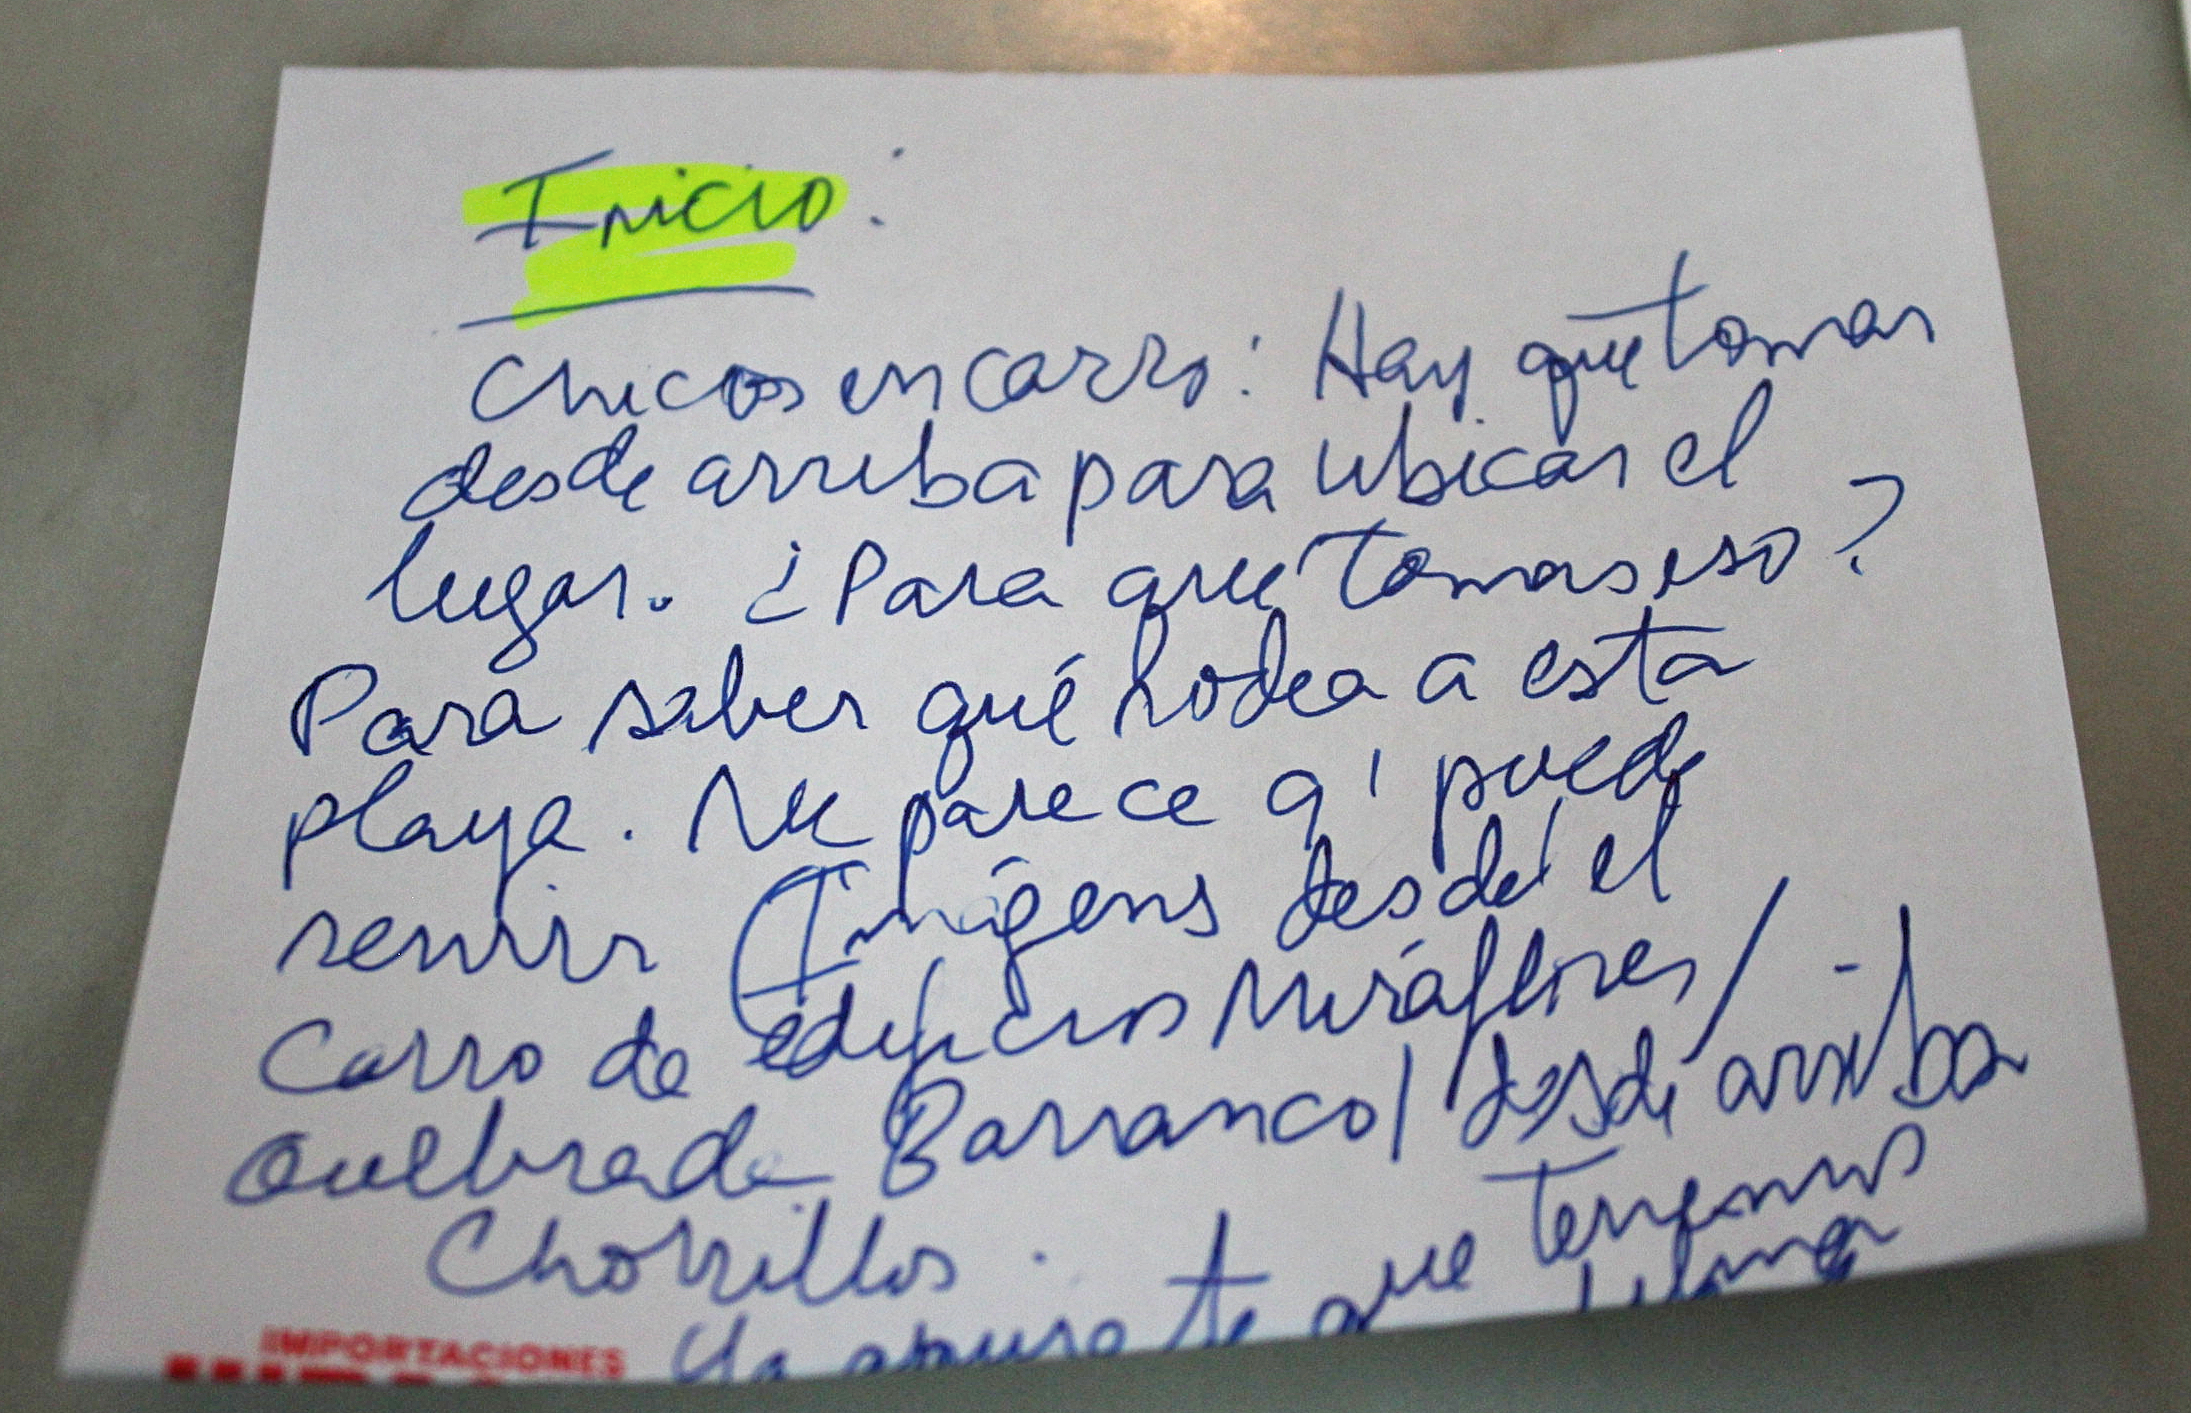 Inicio:
Chicos en carro: Hay que tomar
desde arriba para ubicar el
lugar. ¿Para que tomas eso?
Para saber qué rodea a esta
playa. Me parece q' puede
servir (Imágens desde el
Carro de edificios Miraflores/
Quebrada Barranco/desde arriba
Chorrillos.
Ya apurate que tenemos
IMPORTACIONES